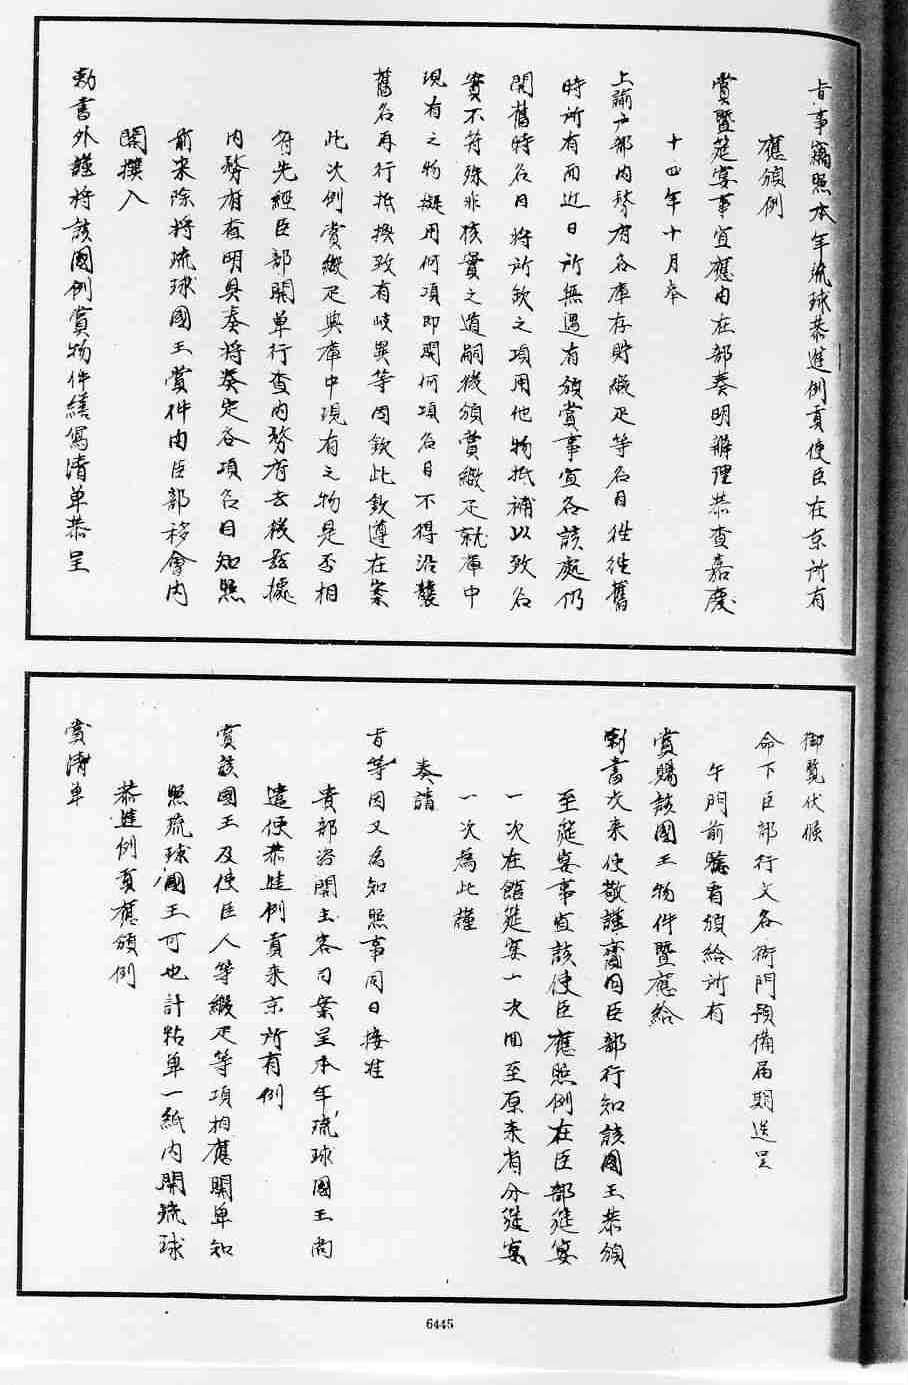 旨事竊照本年琉球恭進例貢使臣在京所有
應頒例
賞暨筵宴事宜應由在部奏明辦理恭查嘉慶
十四年十月奉
上諭户部内務府各庫存貯緞疋等名目往往舊
時所有而近日所無遇有頒賞事宜各該處仍
開舊時名目將所欽之項用他物抵補以致名
實不符殊非核實之道嗣後頒賞緞疋就庫中
現有之物擬用何項即開何項名目不得沿襲
舊名再行抵換致有岐異等因欽此欽遵在案
此次例賞緞疋與庫中現有之物是否相
符先經臣部開單行查内務府去後茲據
内務府查明具奏將奏定各項名目知照
前来除將琉球國王賞件由臣部移會内
閣撰入
勅書外謹將該國例賞物件繕寫清单恭呈
御覽伏候
命下臣部行文各衙門預備届期送呈
午門前驗看頒給所有
賞賜該國王物件暨應給
勅書次来使敬謹齎回臣部行知該國王恭領
至筵宴事宜該使臣應照例在臣部筵宴
一次在館筵宴一次回至原来省分筵宴
一次為此謹
奏請
旨等因又為知照事同日接准
貴部咨開主客司案呈本年琉球國王尚
遣使恭進例貢来京所有例
賞該國王及使臣人等緞疋等項相應開单知
照琉球國王可也計粘单一紙内開琉球
恭進例貢應頒例
賞清单
6445